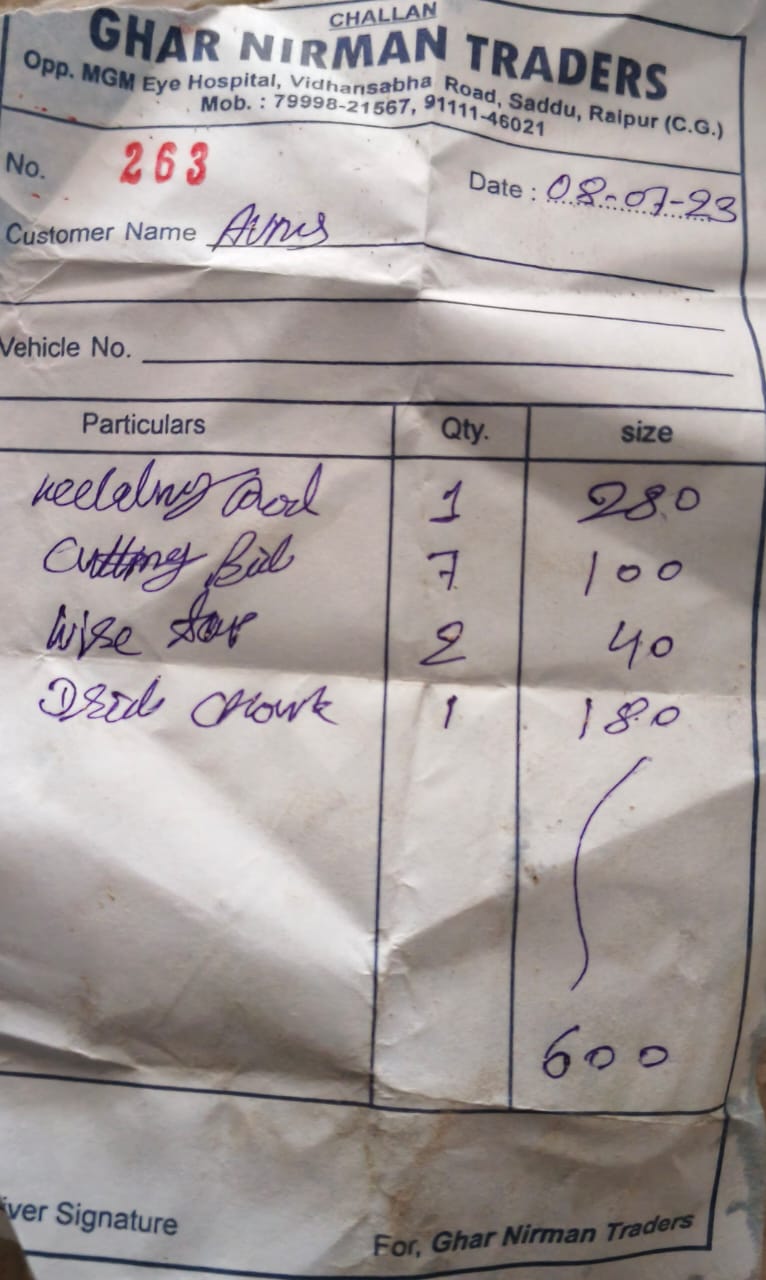 CHALLAN
GHAR NIRMAN TRADERS
Opp. MGM Eye Hospital, Vidhansabha Road, Saddu, Raipur (C.G.)
Mob. : 79998-21567, 91111-46021
No. 263
Date : 08-07-23
Customer Name
Vehicle No.
Particulars Qty. size
Rod 1 280
Cutting 7 100
2 40
1 180
600
iver Signature
For, Ghar Nirman Traders